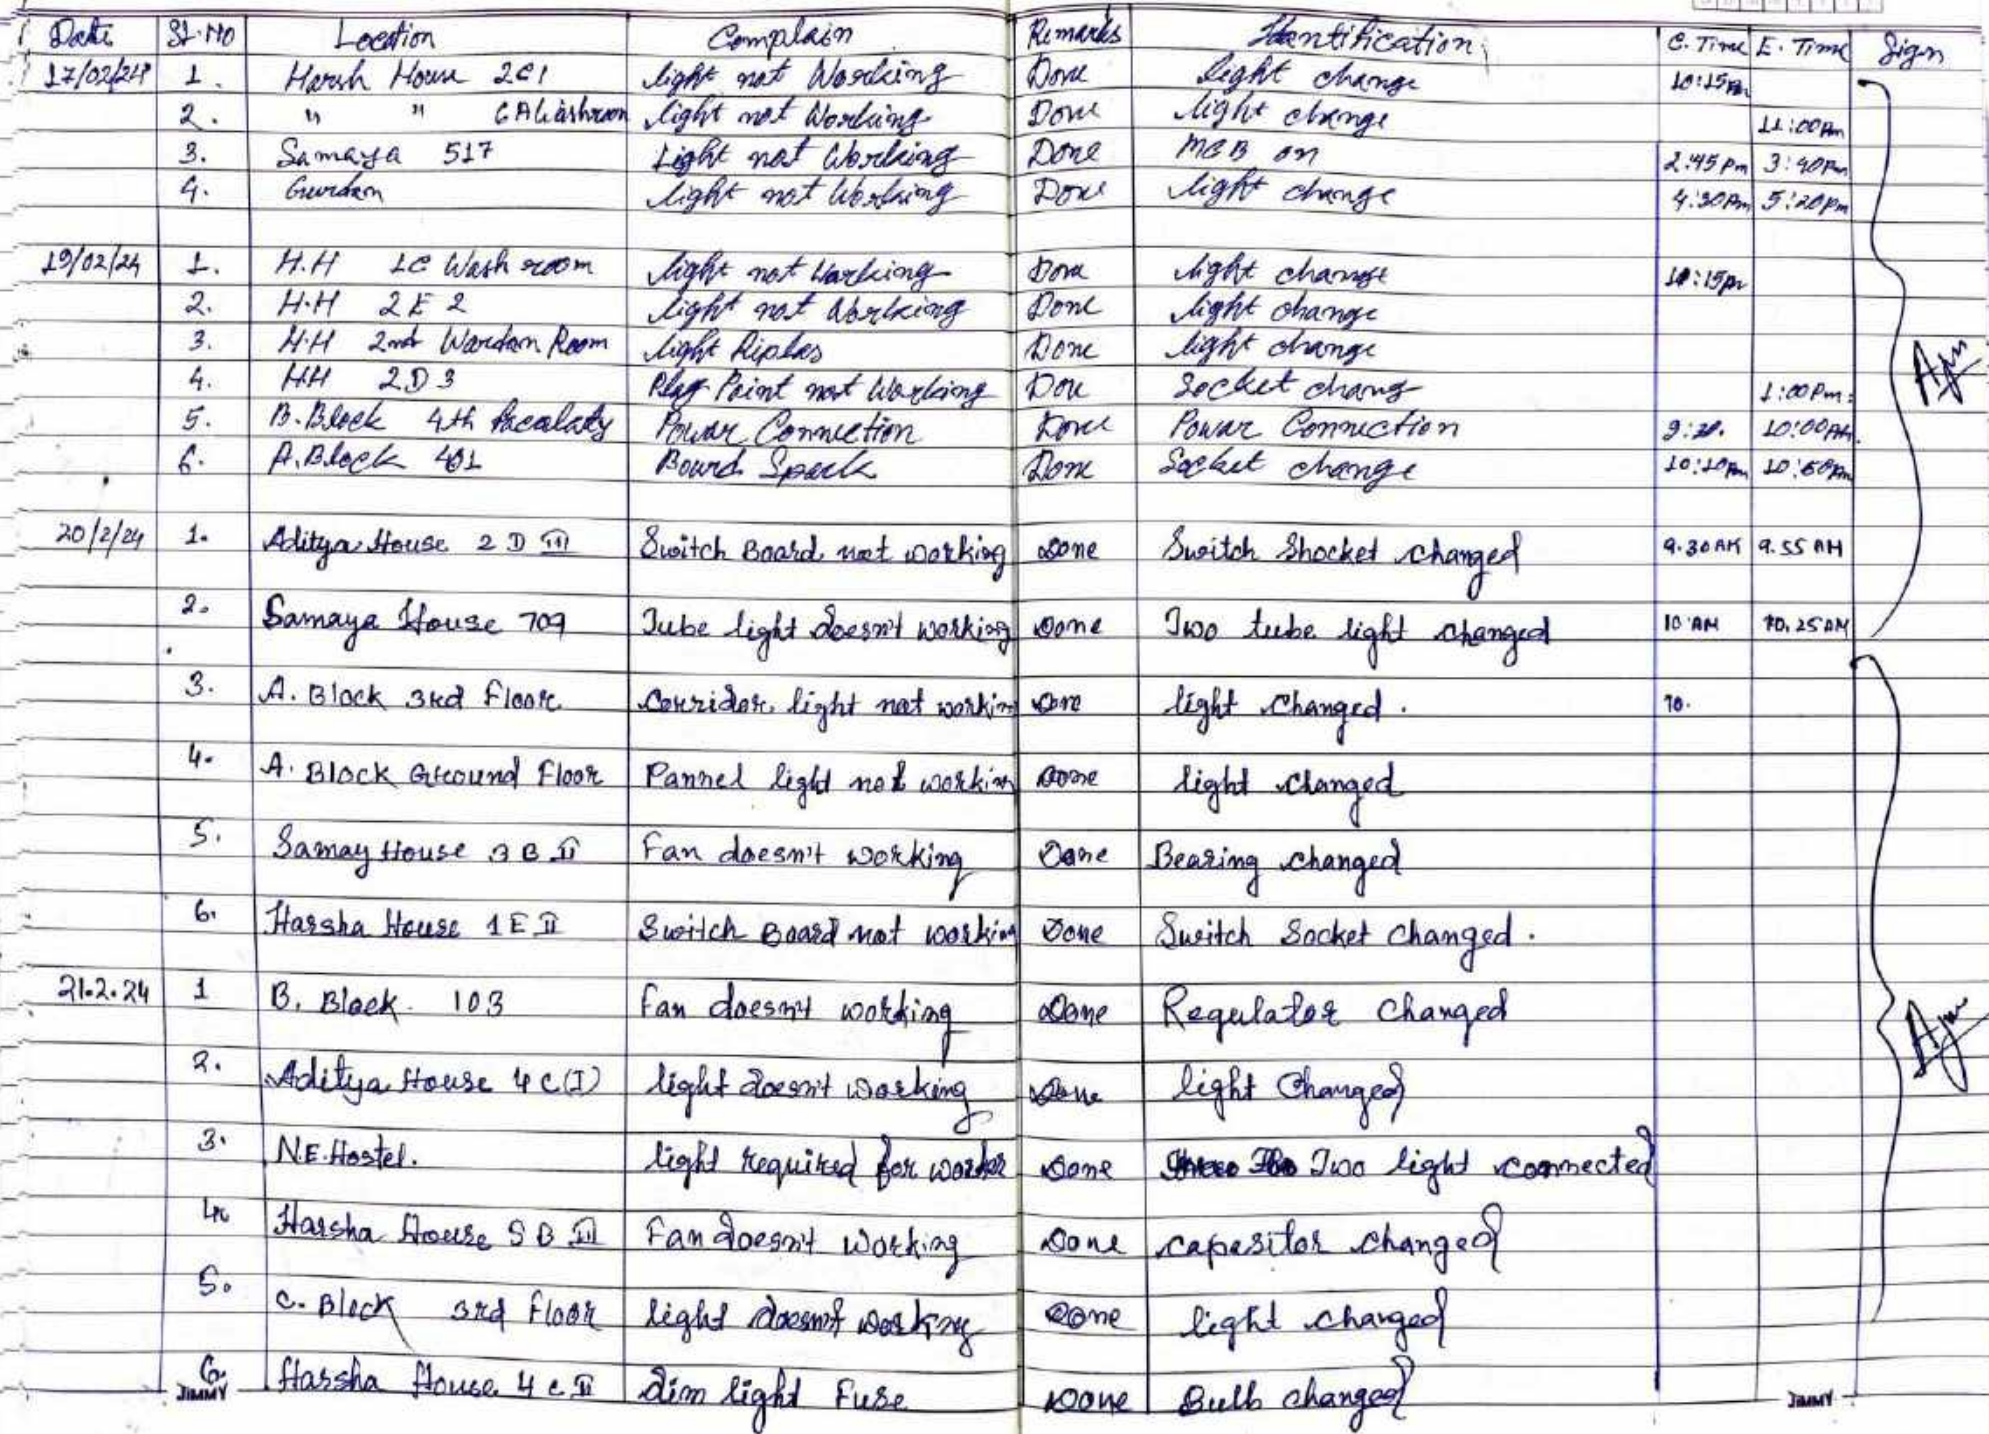 Date Sl.No Location Complain Remarks Idantification C. Time E. Time Sign
17/02/24 1. Harsh House 2C1 light not Working Done light change 10:15Am
2. " " light not Working Done light change 11:00Am
3. Samaya 517 Light not Working Done MCB on 2:45pm 3:40pm
4. light not Working Done light change 4:30Pm 5:20pm
19/02/24 1. H.H 1C Wash room light not Working Done light change
2. H.H 2E2 light not Working Done light change
3. H.H 2nd Wardan Room light Done light change
4. H.H 2D3 Plag Point not Working Done Socket chang 1:00Pm
5. B.Block 4th Powar Connection Done Powar Connection 9:20. 10:00AM
6. A.Block 401 Board Spark Done Socket change 10:10Am 10:50Am
20/2/24 1. Aditya House 2 D III Switch Board not working Done Switch Shocket changed 9.30 AM 9.55 AM
2. Samaya House 709 Tube light doesn't working Done Two tube light changed 10 AM 10.25 AM
3. A. Block 3rd Floor Corridor light not working Done light changed. 10.
4. A. Block Ground Floor Pannel light not working Done light changed
5. Samay House 3 B II Fan doesn't working Done Bearing changed
6. Harsha House 1 E II Switch Board not working Done Switch Socket changed.
21.2.24 1 B. Block 103 Fan doesn't working Done Regulator Changed
2. Aditya House 4 C (I) light doesn't working Done light Changed
3. N.E. Hostel. light required for worker Done Two light connected
4. Harsha House 5 B III Fan doesn't working Done capasitor changed
5. C. Block 3rd Floor light doesn't working Done light changed
6. Harsha House 4 C II dim light Fuse Done Bulb changed
JIMMY JIMMY